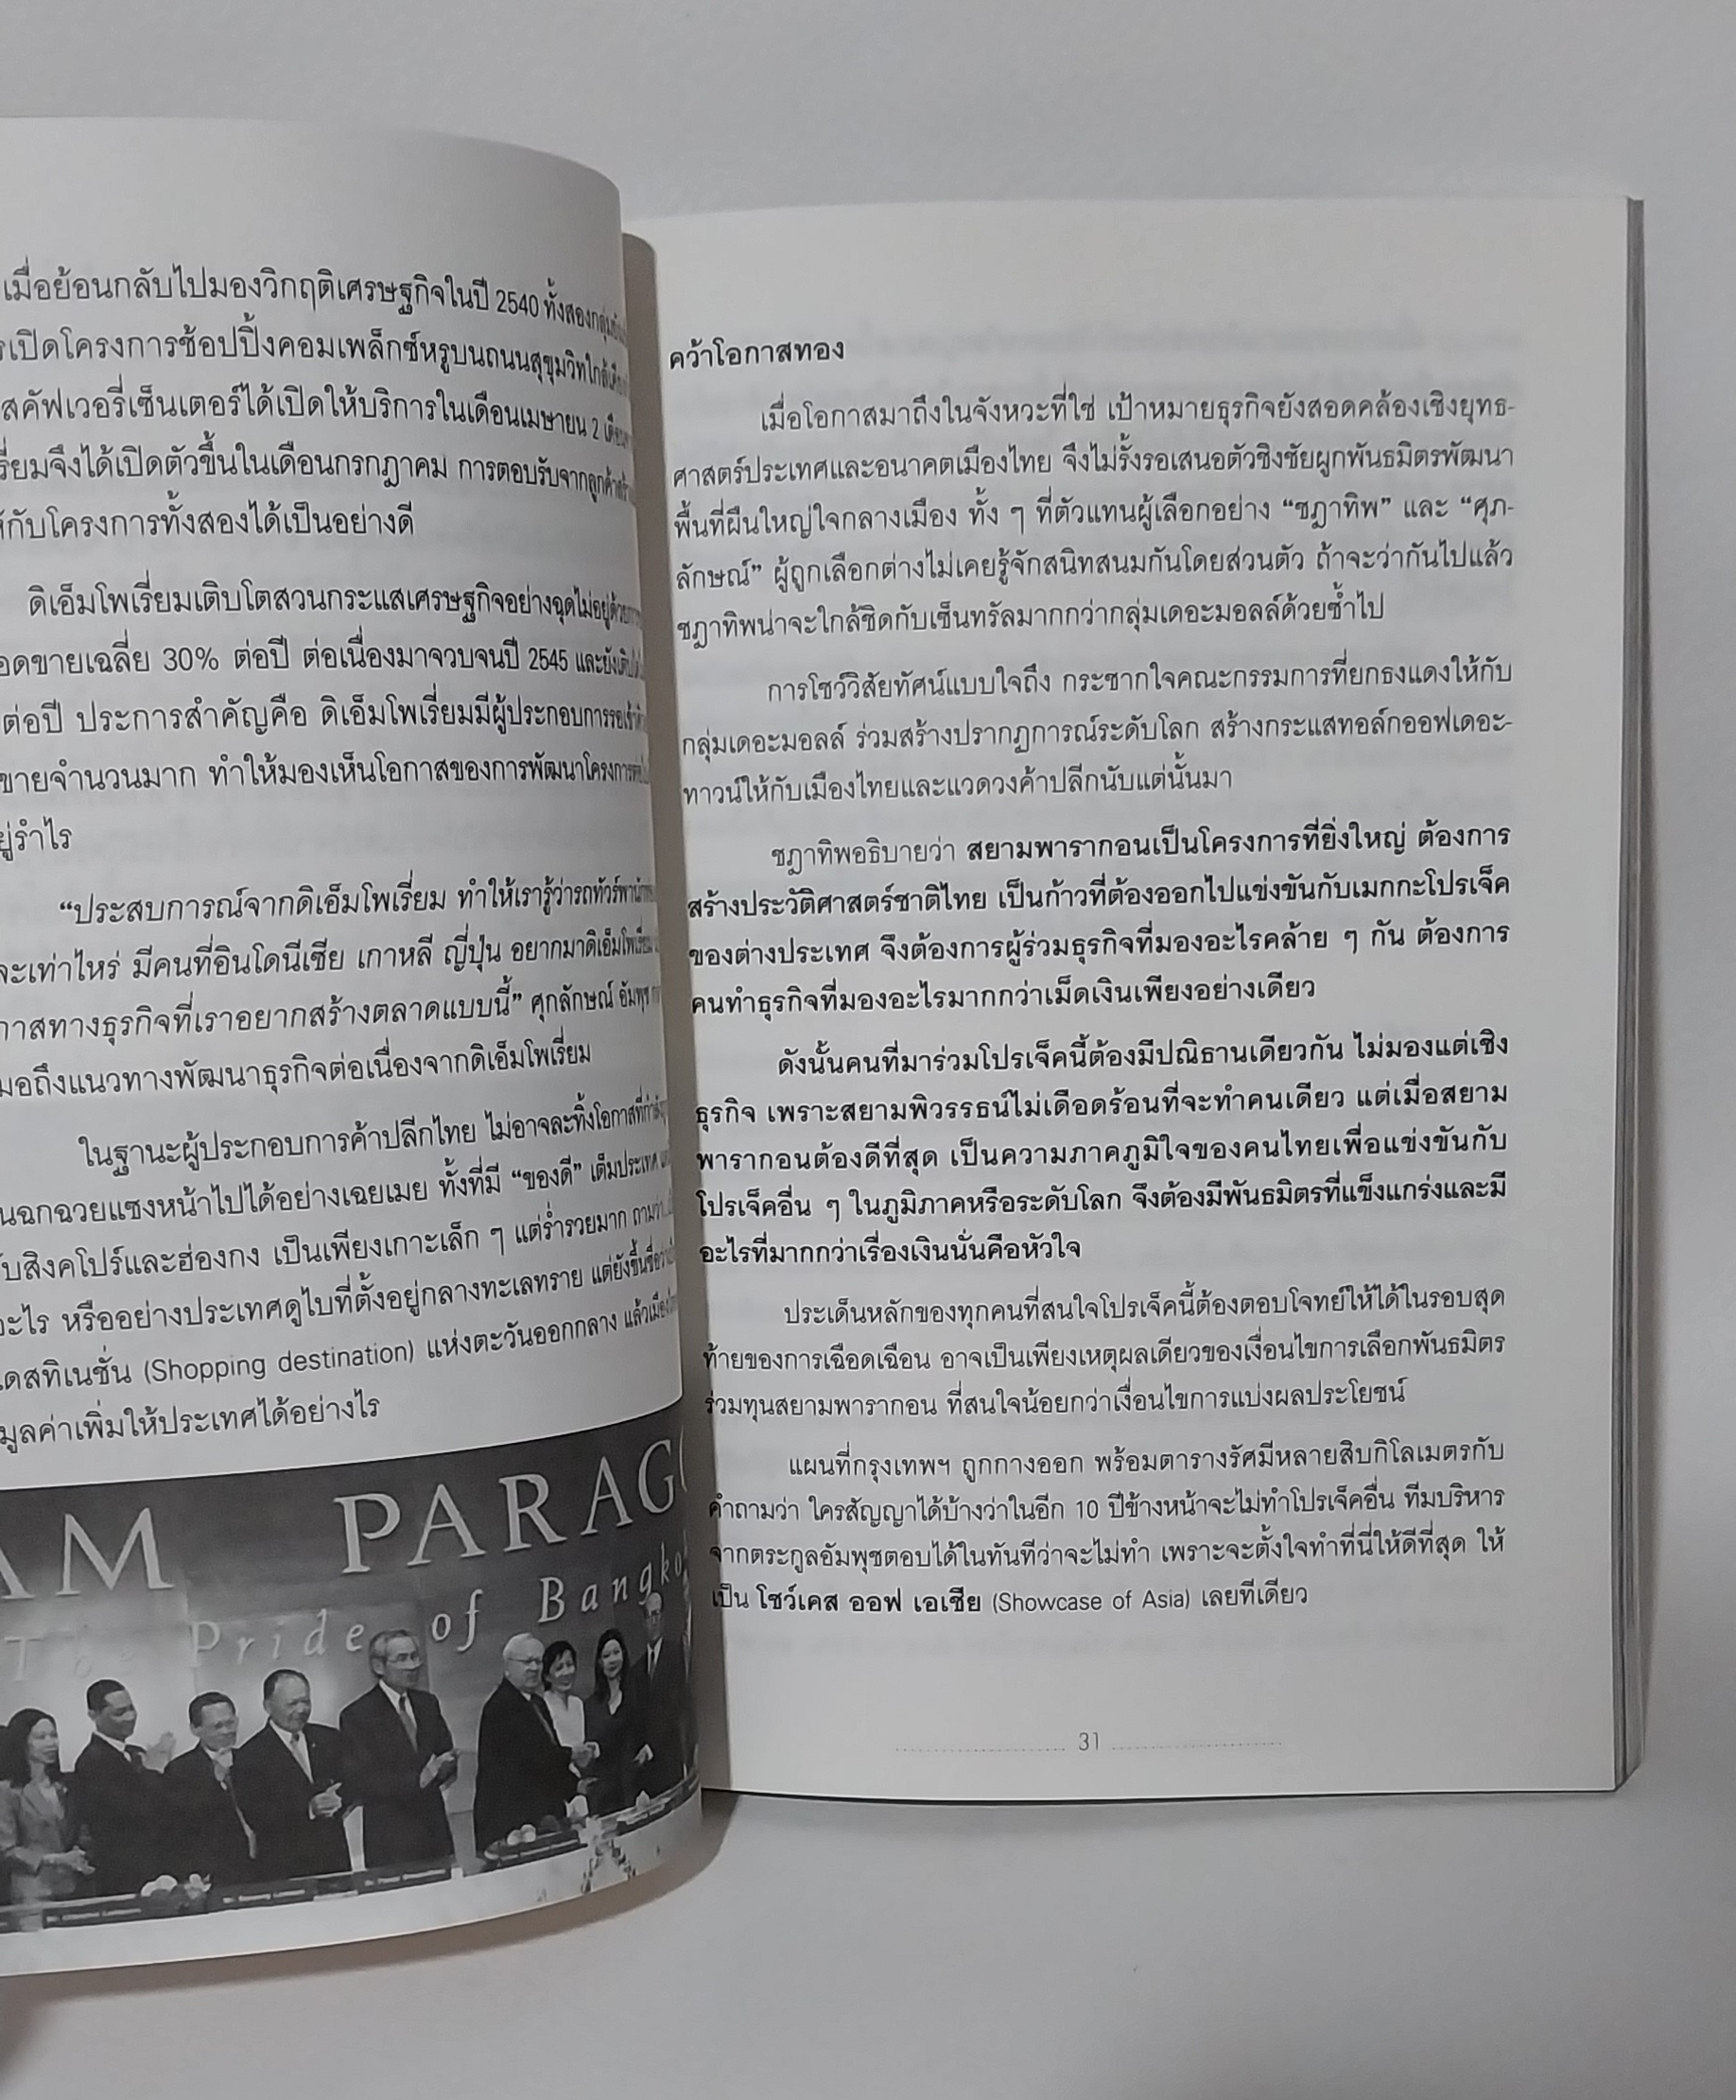 เมื่อย้อนกลับไปมองวิกฤติเศรษฐกิจในปี 2540 ทั้งสอง
เปิดโครงการช้อปปิ้งคอมเพล็กซ์หรูบนถนนสุขุมวิทใกล้
สคัฟเวอรี่เซ็นเตอร์ได้เปิดให้บริการในเดือนเมษายน 2
รี่ยมจึงได้เปิดตัวขึ้นในเดือนกรกฎาคม การตอบรับจากลูกค้า
กับโครงการทั้งสองได้เป็นอย่างดี
ดิเอ็มโพเรี่ยมเติบโตสวนกระแสเศรษฐกิจอย่างฉุดไม่อยู่ด้วย
อดขายเฉลี่ย 30% ต่อปี ต่อเนื่องมาจวบจนปี 2545 และยัง
ต่อปี ประการสำคัญคือ ดิเอ็มโพเรี่ยมมีผู้ประกอบการรอ
ขายจำนวนมาก ทำให้มองเห็นโอกาสของการพัฒนาโครงการ
ยู่รำไร
“ประสบการณ์จากดิเอ็มโพเรี่ยม ทำให้เรารู้ว่ารถทัวร์
ละเท่าไหร่ มีคนที่อินโดนีเซีย เกาหลี ญี่ปุ่น อยากมาดิเอ็มโพเรี่ยม
กาสทางธุรกิจที่เราอยากสร้างตลาดแบบนี้” ศุภลักษณ์ อัมพุช
มอถึงแนวทางพัฒนาธุรกิจต่อเนื่องจากดิเอ็มโพเรี่ยม
ในฐานะผู้ประกอบการค้าปลีกไทย ไม่อาจละทิ้งโอกาสที่
นฉกฉวยแซงหน้าไปได้อย่างเฉยเมย ทั้งที่มี “ของดี” เต็มประเทศ
บสิงคโปร์และฮ่องกง เป็นเพียงเกาะเล็ก ๆ แต่ร่ำรวยมาก ถามว่า
อะไร หรืออย่างประเทศดูไบที่ตั้งอยู่กลางทะเลทราย แต่ยังขึ้นชื่อว่า
เดสทิเนชั่น (Shopping destination) แห่งตะวันออกกลาง แล้วเมือง
มูลค่าเพิ่มให้ประเทศได้อย่างไร
AM PARAG
The Pride of Bangko
คว้าโอกาสทอง
เมื่อโอกาสมาถึงในจังหวะที่ใช่ เป้าหมายธุรกิจยังสอดคล้องเชิงยุทธ-
ศาสตร์ประเทศและอนาคตเมืองไทย จึงไม่รั้งรอเสนอตัวชิงชัยผูกพันธมิตรพัฒนา
พื้นที่ผืนใหญ่ใจกลางเมือง ทั้ง ๆ ที่ตัวแทนผู้เลือกอย่าง “ชฎาทิพ” และ “ศุภ-
ลักษณ์” ผู้ถูกเลือกต่างไม่เคยรู้จักสนิทสนมกันโดยส่วนตัว ถ้าจะว่ากันไปแล้ว
ชฎาทิพน่าจะใกล้ชิดกับเซ็นทรัลมากกว่ากลุ่มเดอะมอลล์ด้วยซ้ำไป
การโชว์วิสัยทัศน์แบบใจถึง กระชากใจคณะกรรมการที่ยกธงแดงให้กับ
กลุ่มเดอะมอลล์ ร่วมสร้างปรากฏการณ์ระดับโลก สร้างกระแสทอล์กออฟเดอะ-
ทาวน์ให้กับเมืองไทยและแวดวงค้าปลีกนับแต่นั้นมา
ชฎาทิพอธิบายว่า สยามพารากอนเป็นโครงการที่ยิ่งใหญ่ ต้องการ
สร้างประวัติศาสตร์ชาติไทย เป็นก้าวที่ต้องออกไปแข่งขันกับเมกกะโปรเจ็ค
ของต่างประเทศ จึงต้องการผู้ร่วมธุรกิจที่มองอะไรคล้าย ๆ กัน ต้องการ
คนทำธุรกิจที่มองอะไรมากกว่าเม็ดเงินเพียงอย่างเดียว
ดังนั้นคนที่มาร่วมโปรเจ็คนี้ต้องมีปณิธานเดียวกัน ไม่มองแต่เชิง
ธุรกิจ เพราะสยามพิวรรธน์ไม่เดือดร้อนที่จะทำคนเดียว แต่เมื่อสยาม
พารากอนต้องดีที่สุด เป็นความภาคภูมิใจของคนไทยเพื่อแข่งขันกับ
โปรเจ็คอื่น ๆ ในภูมิภาคหรือระดับโลก จึงต้องมีพันธมิตรที่แข็งแกร่งและมี
อะไรที่มากกว่าเรื่องเงินนั่นคือหัวใจ
ประเด็นหลักของทุกคนที่สนใจโปรเจ็คนี้ต้องตอบโจทย์ให้ได้ในรอบสุด
ท้ายของการเฉือดเฉือน อาจเป็นเพียงเหตุผลเดียวของเงื่อนไขการเลือกพันธมิตร
ร่วมทุนสยามพารากอน ที่สนใจน้อยกว่าเงื่อนไขการแบ่งผลประโยชน์
แผนที่กรุงเทพฯ ถูกกางออก พร้อมตารางรัศมีหลายสิบกิโลเมตรกับ
คำถามว่า ใครสัญญาได้บ้างว่าในอีก 10 ปีข้างหน้าจะไม่ทำโปรเจ็คอื่น ทีมบริหาร
จากตระกูลอัมพุชตอบได้ในทันทีว่าจะไม่ทำ เพราะจะตั้งใจทำที่นี่ให้ดีที่สุด ให้
เป็น โชว์เคส ออฟ เอเชีย (Showcase of Asia) เลยทีเดียว
31